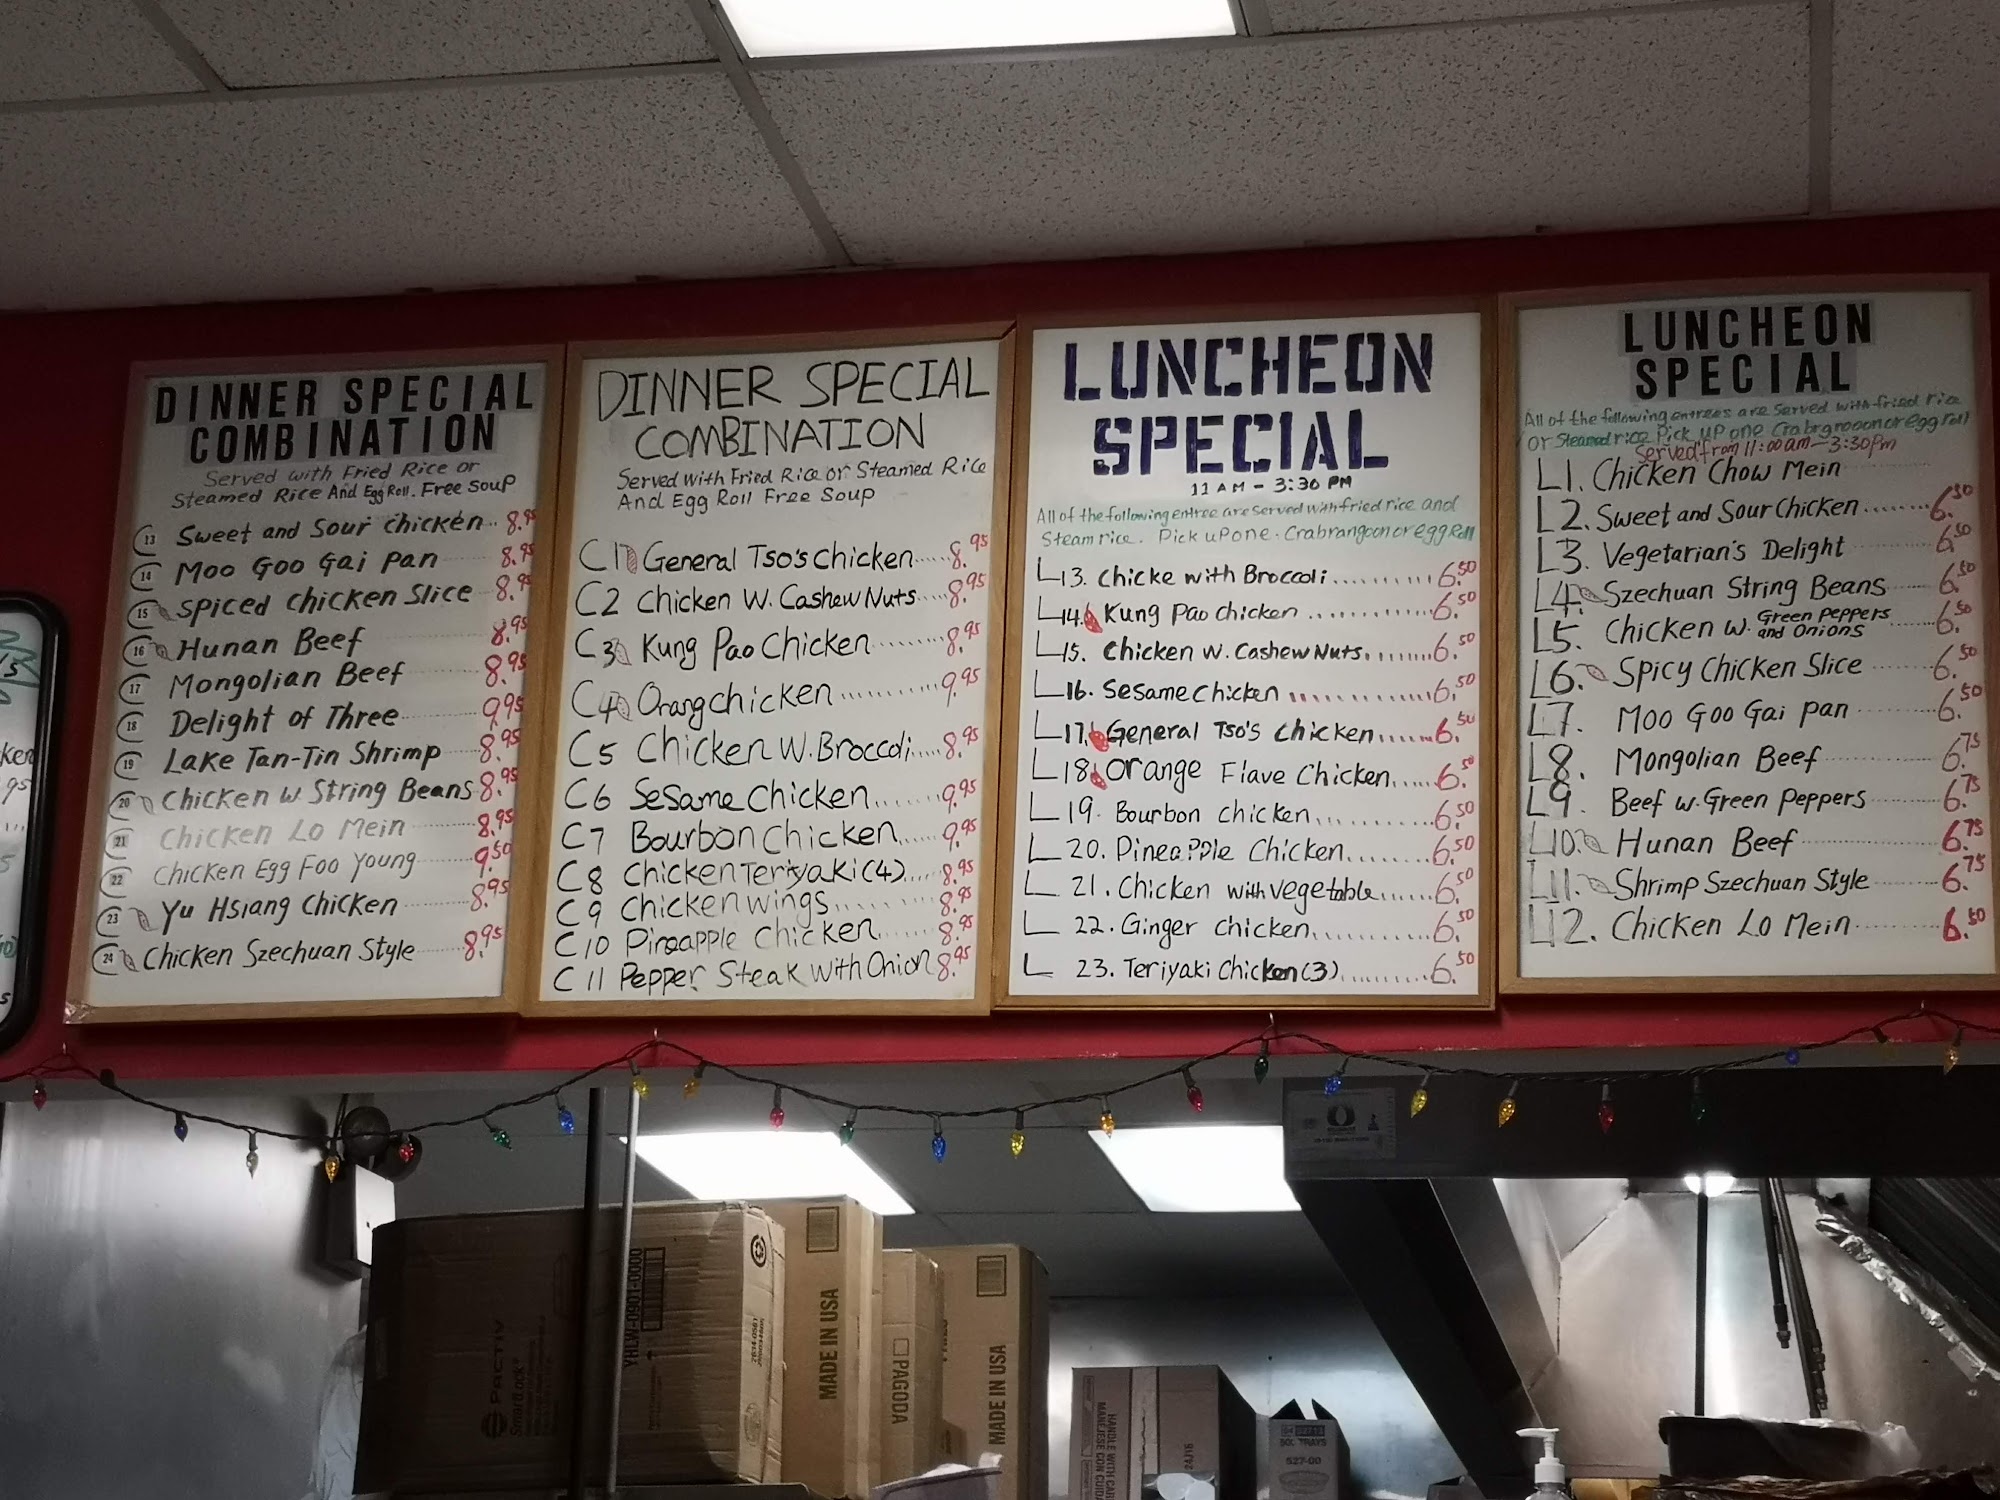 DINNER SPECIAL
COMBINATION
Served with Fried Rice or
Steamed Rice And Egg Roll. Free Soup
13 Sweet and Sour Chicken 8.95
14 Moo Goo Gai Pan 8.95
15 Spiced Chicken Slice 8.95
16 Hunan Beef 8.95
17 Mongolian Beef 8.95
18 Delight of Three 9.95
19 Lake Tan-Tin Shrimp 8.95
20 Chicken W String Beans 8.95
21 Chicken Lo Mein 8.95
22 Chicken Egg Foo Young 9.50
23 Yu Hsiang Chicken 8.95
24 Chicken Szechuan Style 8.95
DINNER SPECIAL
COMBINATION
Served with Fried Rice or Steamed Rice
And Egg Roll Free Soup
C1 General Tso's Chicken 8.95
C2 Chicken W. Cashew Nuts 8.95
C3 Kung Pao Chicken 8.95
C4 Orang chicken 9.95
C5 Chicken W. Broccoli 8.95
C6 Sesame Chicken 9.95
C7 Bourbon Chicken 9.95
C8 Chicken Teriyaki (4) 8.95
C9 Chicken wings 8.95
C10 Pineapple Chicken 8.95
C11 Pepper Steak with Onion 8.95
LUNCHEON
SPECIAL
11 AM - 3:30 PM
All of the following entree are served with fried rice and
Steam rice. Pick up one. Crabrangoon or egg Roll
L13. Chicke with Broccoli 6.50
L14. Kung Pao Chicken 6.50
L15. Chicken W. Cashew Nuts 6.50
L16. Sesame Chicken 6.50
L17. General Tso's Chicken 6.50
L18. Orange Flave Chicken 6.50
L19. Bourbon Chicken 6.50
L20. Pineapple Chicken 6.50
L21. Chicken with vegetable 6.50
L22. Ginger Chicken 6.50
L23. Teriyaki Chicken (3) 6.50
LUNCHEON
SPECIAL
All of the following entrees are served with fried rice
or Steamed rice Pick up one Crabrgnooon or egg roll
Served from 11:00am - 3:30pm
L1. Chicken Chow Mein
L2. Sweet and Sour Chicken 6.50
L3. Vegetarian's Delight 6.50
L4. Szechuan String Beans 6.50
L5. Chicken W. Green Peppers and Onions 6.50
L6. Spicy Chicken Slice 6.50
L7. Moo Goo Gai Pan 6.50
L8. Mongolian Beef 6.75
L9. Beef w. Green Peppers 6.75
L10. Hunan Beef 6.75
L11. Shrimp Szechuan Style 6.75
L12. Chicken Lo Mein 6.50
PACTIV
SmartLock
YHLW-0901-0000
MADE IN USA
PAGODA
MADE IN USA
HANDLE WITH CARE
527-00